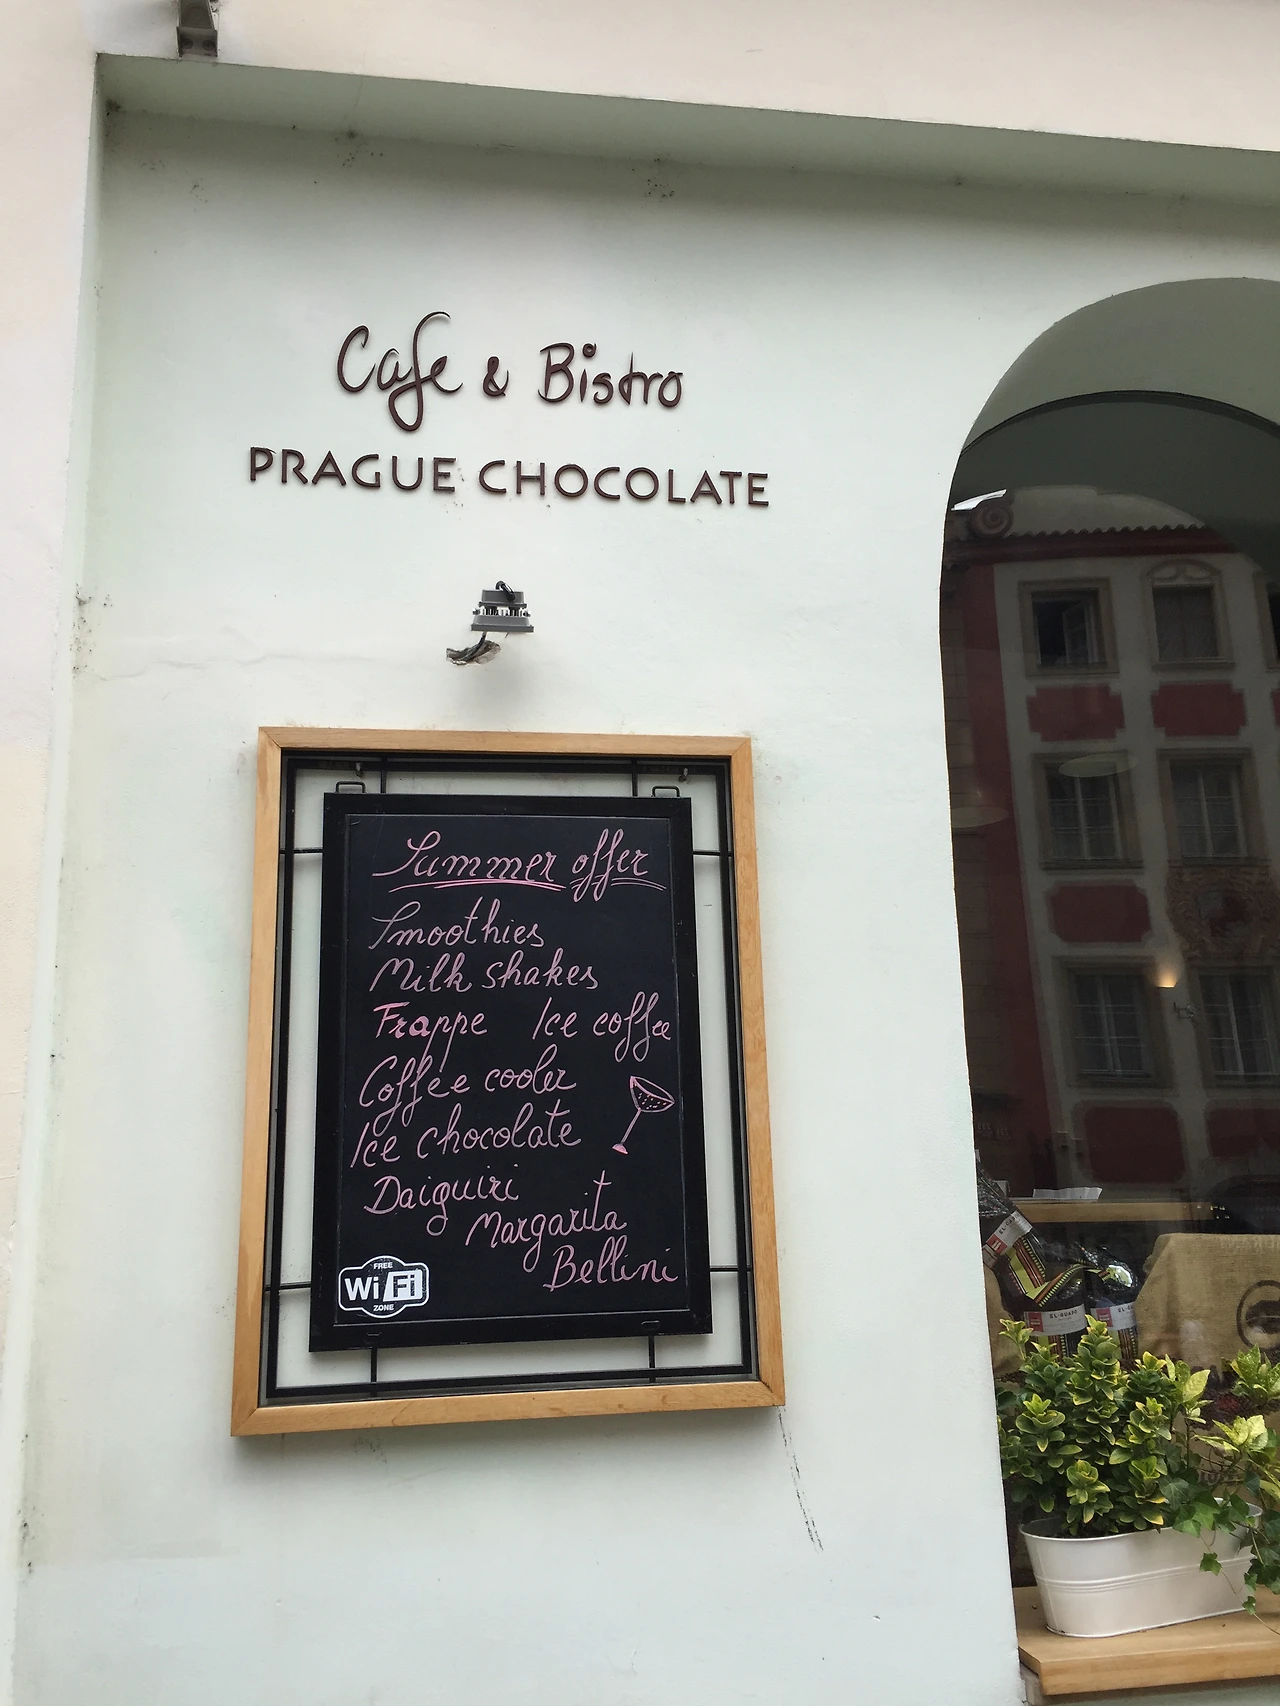 Cafe & Bistro
PRAGUE CHOCOLATE
Summer offer
Smoothies
Milk shakes
Frappe Ice coffee
Coffee cooler
Ice chocolate
Daiquiri
Margarita
Bellini
FREE
WiFi
ZONE